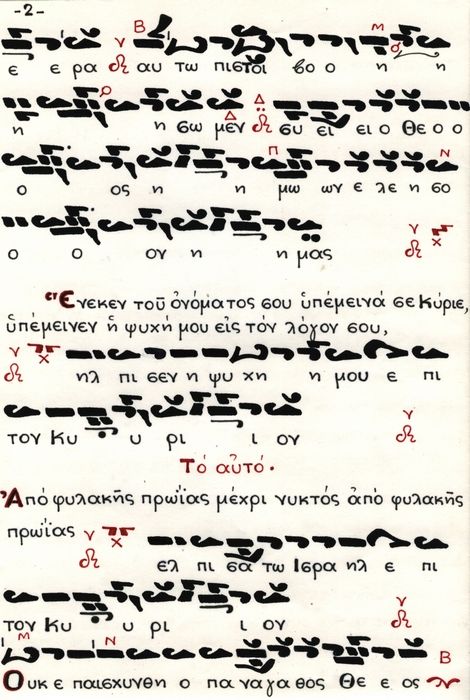 -2-
ε ε ρα αυ τω πιστοι βο ο η η
η η σω μεν συ ει ει ο Θε ο ο
ο ος η η μω ων ε λε η σο
ο ο ον η η μας
Ἕνεκεν τοῦ ὀνόματος σου ὑπέμεινά σε Κύριε,
ὑπέμεινεν ἡ ψυχή μου εἰς τὸν λόγον σου,
ηλ πι σεν η ψυ χη η μου ε πι
τον Κυ υ ρι ι ον
Τό αὐτό.
Ἀπό φυλακῆς πρωΐας μέχρι νυκτός ἀπό φυλακῆς
πρωΐας
ελ πι σα τω Ισρα ηλ ε πι
τον Κυ υ ρι ι ον
Ουκ ε παισχυνθη ο πα ναγα θος Θε ε ος